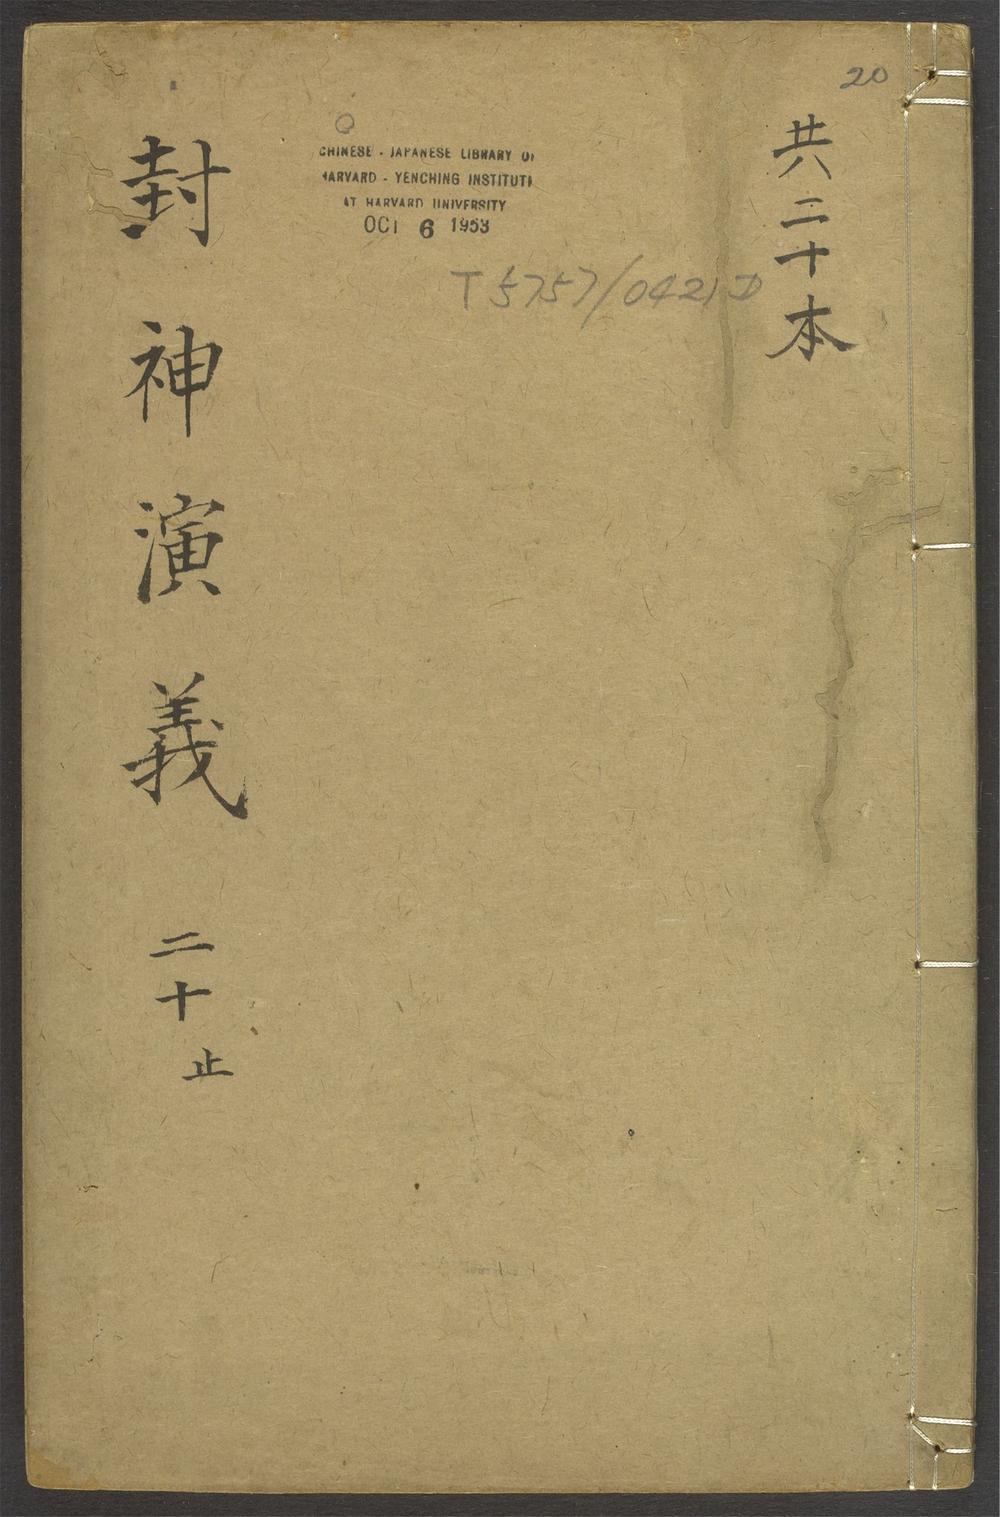 20
共二十本
CHINESE - JAPANESE LIBRARY OF
HARVARD - YENCHING INSTITUTE
AT HARVARD UNIVERSITY
OCT 6 1953
T 5757/0421 D
封神演義 二十 止